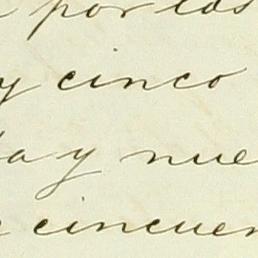 por los
y cinco
a y nue
cincuen